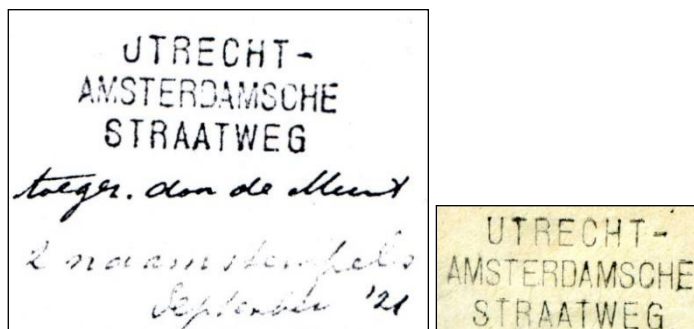 UTRECHT-
AMSTERDAMSCHE
STRAATWEG
toegez. door de Munt
2 naamstempels
September '21
UTRECHT-
AMSTERDAMSCHE
STRAATWEG